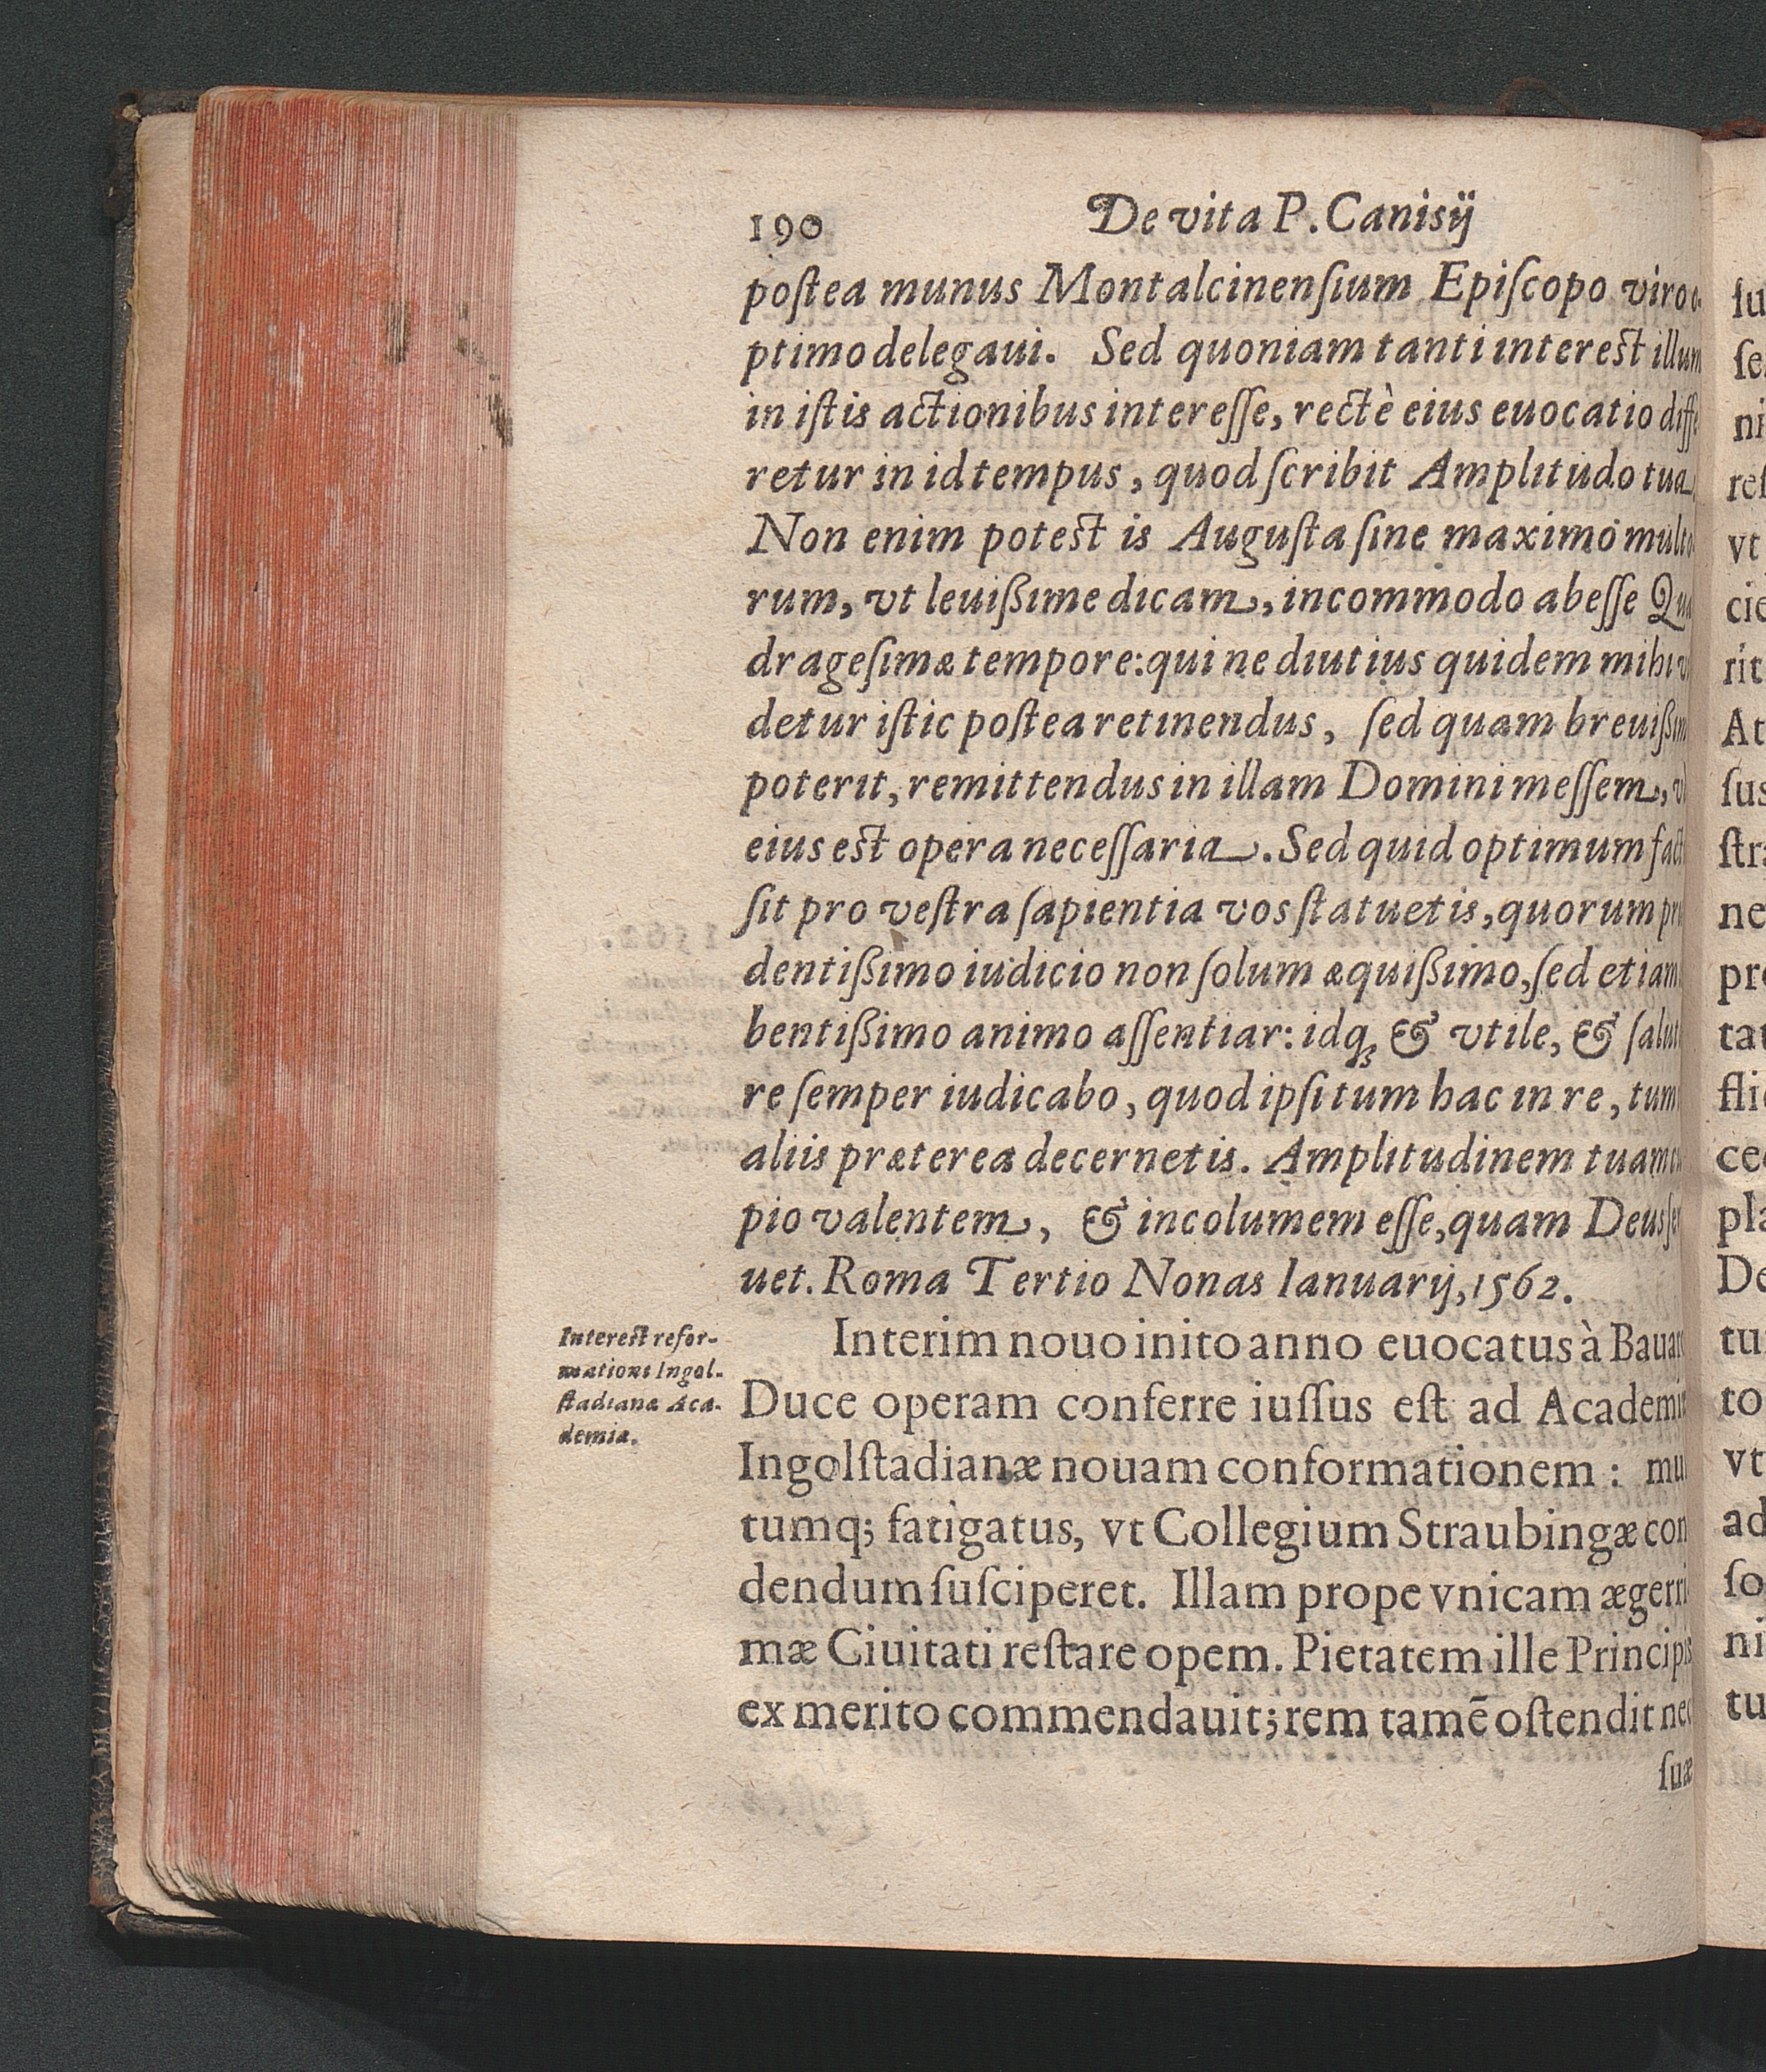 190 De vita P. Canisij
postea munus Montalcinensium Episcopo viro o-
ptimo delegaui. Sed quoniam tanti interest illum
in istis actionibus interesse, rectè eius euocatio diffe
retur in id tempus, quod scribit Amplitudo tua
Non enim potest is Augusta sine maximo multo
rum, vt leuißime dicam, incommodo abesse Qua
dragesimæ tempore: qui ne diutius quidem mihi vi
detur istic postea retinendus, sed quam breuißim
poterit, remittendus in illam Domini messem,
eius est opera necessaria. Sed quid optimum fact
sit pro vestra sapientia vos statuetis, quorum pru
dentißimo iudicio non solum æquißimo, sed etiam
bentißimo animo assentiar: idq; & vtile, & saluta
re semper iudicabo, quod ipsi tum hac in re, tum
aliis præterea decernetis. Amplitudinem tuam cu
pio valentem, & incolumem esse, quam Deus ser
uet. Roma Tertio Nonas Ianuarij, 1562.
Interest refor-
mationi Ingol-
stadianæ Aca-
demiæ.
Interim nouo inito anno euocatus à Bauar
Duce operam conferre iussus est ad Academi
Ingolstadianæ nouam conformationem: mul
tumq; fatigatus, vt Collegium Straubingæ con
dendum susciperet. Illam prope vnicam ægerri
mæ Ciuitati restare opem. Pietatem ille Principis
ex merito commendauit; rem tamē ostendit nec
suæ
ni
vt
rit
At
sus
ne
De
to
vt
ad
ni
tu